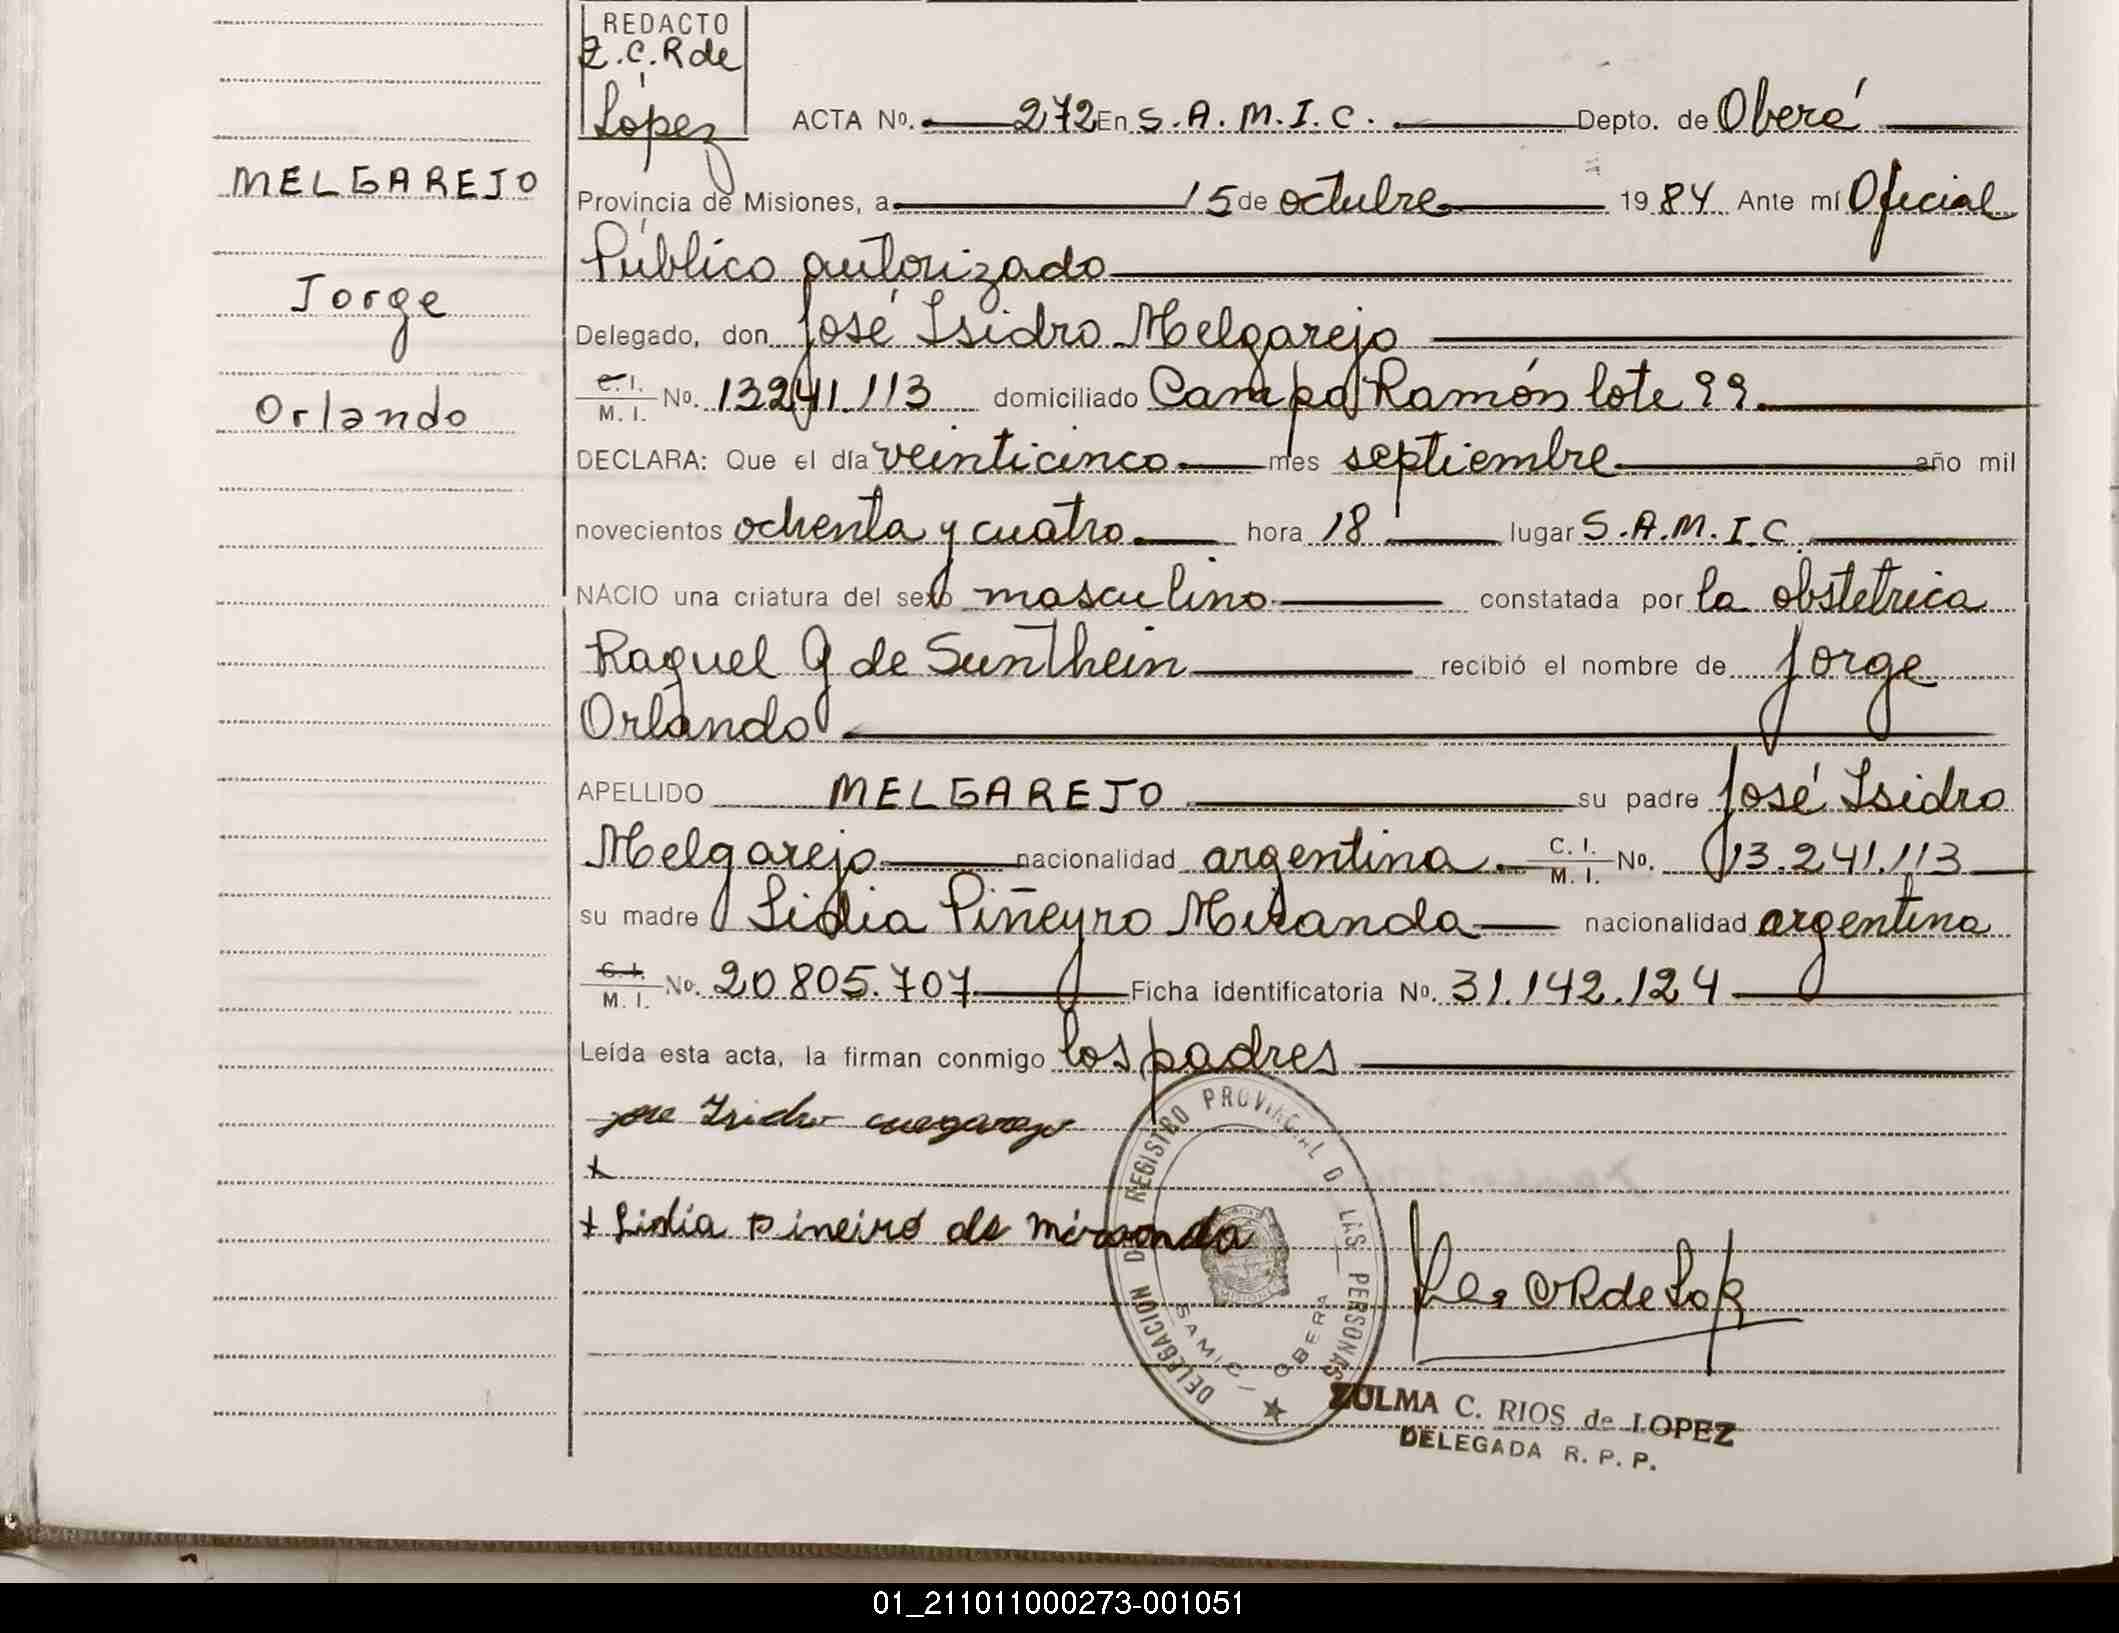 REDACTO
Z.C.R de
López
ACTA Nº. 272 En S.A.M.I.C. Depto. de Oberá
MELGAREJO
Provincia de Misiones, a 15 de octubre 1984 Ante mí Oficial
Público autorizado
Jorge
Delegado, don José Isidro Melgarejo
Orlando
C.I. M.I. No. 13241.113 domiciliado Campo Ramón lote 99
DECLARA: Que el día veinticinco mes septiembre año mil
novecientos ochenta y cuatro hora 18 lugar S.A.M.I.C.
NACIO una criatura del sexo masculino constatada por la obstetrica
Raquel G de Sunthein recibió el nombre de Jorge
Orlando
APELLIDO MELGAREJO su padre José Isidro
Melgarejo nacionalidad argentina C.I. M.I. Nº. 13.241.113
su madre Lidia Piñeyro Miranda nacionalidad argentina
C.I. M.I. Nº. 20805.707 Ficha identificatoria Nº. 31.142.124
Leída esta acta, la firman conmigo los padres
Jose Isidro
x
x Lidia Pineiro de Miranda
DELEGACION D REGISTRO PROVINCIAL D LAS PERSONAS
SAMIC - OBERA
ZULMA C. RIOS de LOPEZ
DELEGADA R. P. P.
01_211011000273-001051